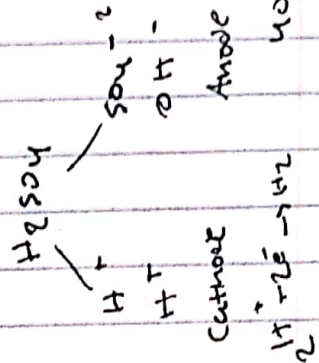 H2SO4
H+ SO4-2
H+ OH-
Cathode Anode
2H+ -2e- → H2 40